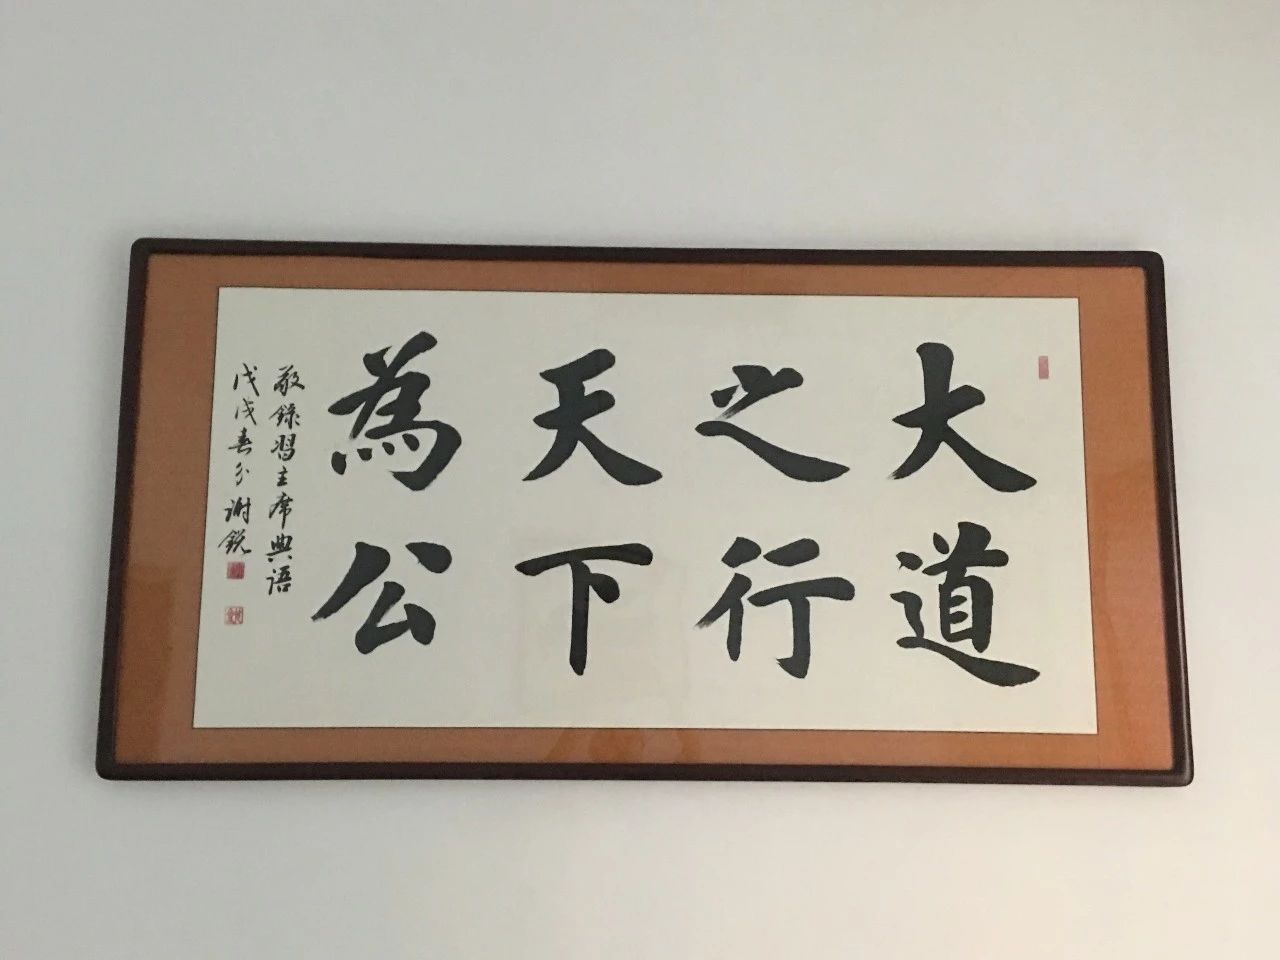 大道
之行
天下
為公
敬錄習主席典語
戊戌春分謝銳